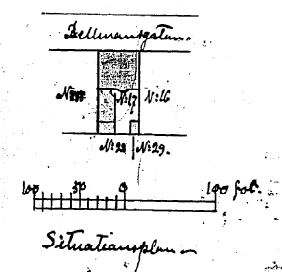 Bellmansgatan.
N:17 N:16
N:28 N:29.
100 50 0 100 fot.
Situationsplan